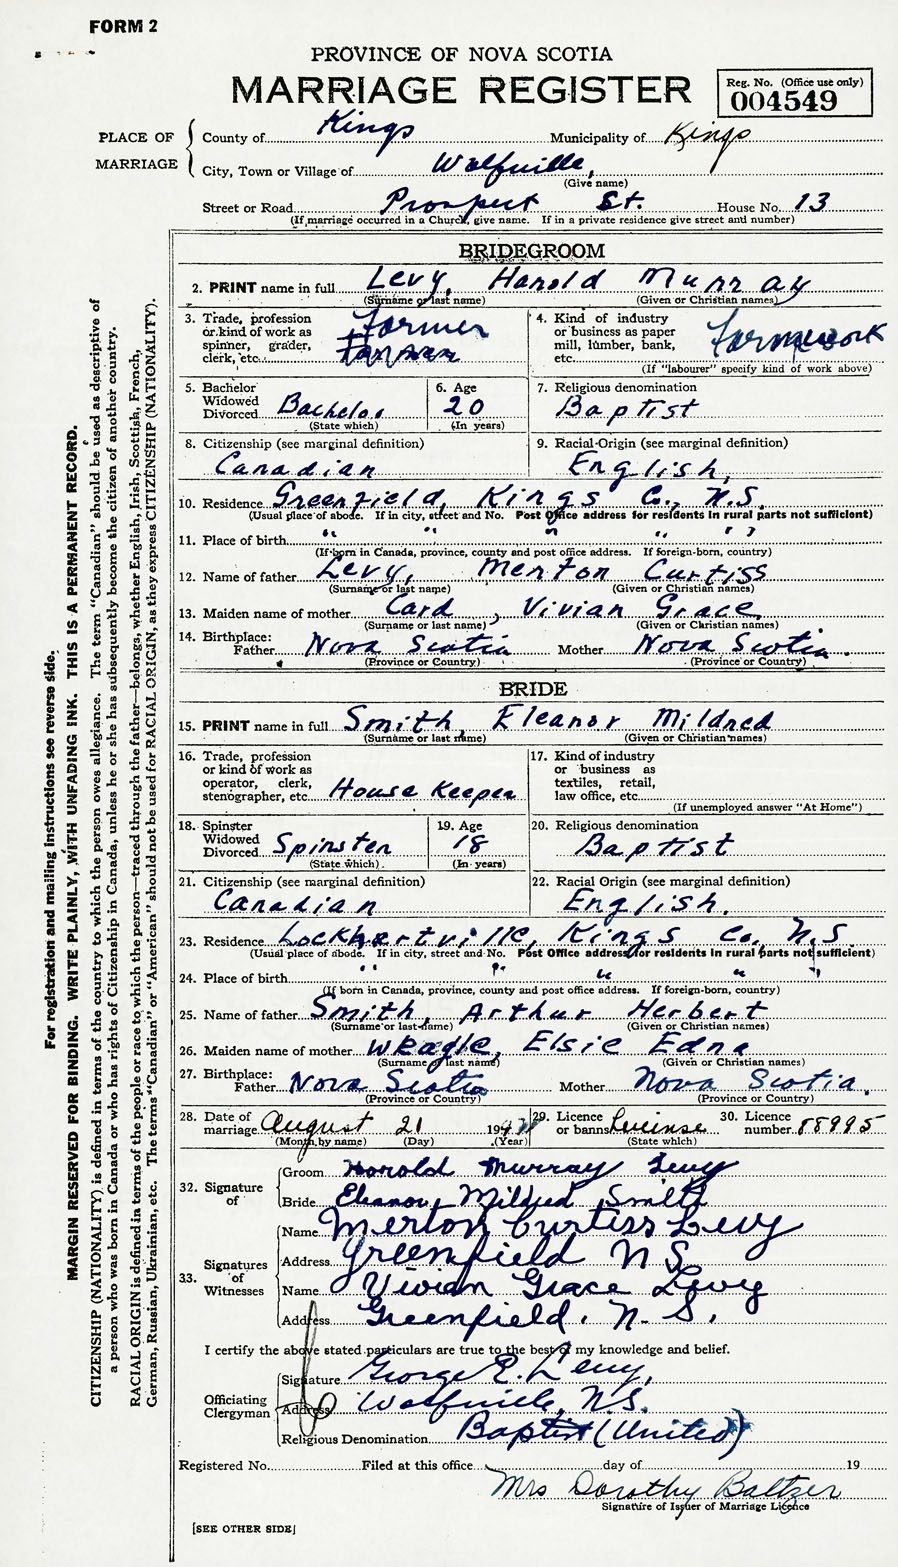 FORM 2
PROVINCE OF NOVA SCOTIA
MARRIAGE REGISTER
Reg. No. (Office use only)
004549
PLACE OF MARRIAGE
County of Kings Municipality of Kings
City, Town or Village of Wolfville,
(Give name)
Street or Road Prospect St. House No. 13
(If marriage occurred in a Church, give name. If in a private residence give street and number)
BRIDEGROOM
2. PRINT name in full Levy, Harold Murray
(Surname or last name) (Given or Christian names)
3. Trade, profession or kind of work as spinner, grader, clerk, etc. Farmer
4. Kind of industry or business as paper mill, lumber, bank, etc. farmework
(If "labourer" specify kind of work above)
5. Bachelor Widowed Divorced Bachelor
(State which)
6. Age 20
(In years)
7. Religious denomination Baptist
8. Citizenship (see marginal definition) Canadian
9. Racial-Origin (see marginal definition) English,
10. Residence Greenfield, Kings Co., N.S.
(Usual place of abode. If in city, street and No. Post Office address for residents in rural parts not sufficient)
11. Place of birth " " " " "
(If born in Canada, province, county and post office address. If foreign-born, country)
12. Name of father Levy, Merton Curtiss
(Surname or last name) (Given or Christian names)
13. Maiden name of mother Card, Vivian Grace
(Surname or last name) (Given or Christian names)
14. Birthplace: Father Nova Scotia Mother Nova Scotia.
(Province or Country) (Province or Country)
BRIDE
15. PRINT name in full Smith, Eleanor Mildred
(Surname or last name) (Given or Christian names)
16. Trade, profession or kind of work as operator, clerk, stenographer, etc. House Keeper
17. Kind of industry or business as textiles, retail, law office, etc.
(If unemployed answer "At Home")
18. Spinster Widowed Divorced Spinster
(State which)
19. Age 18
(In years)
20. Religious denomination Baptist
21. Citizenship (see marginal definition) Canadian
22. Racial Origin (see marginal definition) English.
23. Residence Lockhartville, Kings Co., N.S
(Usual place of abode. If in city, street and No. Post Office address for residents in rural parts not sufficient)
24. Place of birth " " " " "
(If born in Canada, province, county and post office address. If foreign-born, country)
25. Name of father Smith, Arthur Herbert
(Surname or last name) (Given or Christian names)
26. Maiden name of mother Elsie Edna
(Surname or last name) (Given or Christian names)
27. Birthplace: Father Nova Scotia Mother Nova Scotia.
(Province or Country) (Province or Country)
28. Date of marriage August 21 194
(Month by name) (Day) (Year)
29. Licence or banns
(State which)
30. Licence number 88995
32. Signature of
Groom Harold Murray Levy
Bride Eleanor Mildred Smith
33. Signatures of Witnesses
Name Merton Curtiss Levy
Address Greenfield N S
Name Vivian Grace Levy
Address Greenfield. N. S.
I certify the above stated particulars are true to the best of my knowledge and belief.
Officiating Clergyman
Signature George E. Levy,
Address Wolfville, N.S.
Religious Denomination Baptist (United)
Registered No. Filed at this office day of 19
Mrs Dorothy Baltzer
Signature of Issuer of Marriage Licence
[SEE OTHER SIDE]
For registration and mailing instructions see reverse side.
MARGIN RESERVED FOR BINDING. WRITE PLAINLY, WITH UNFADING INK. THIS IS A PERMANENT RECORD.
CITIZENSHIP (NATIONALITY) is defined in terms of the country to which the person owes allegiance. The term "Canadian" should be used as descriptive of
a person who was born in Canada or who has rights of Citizenship in Canada, unless he or she has subsequently become the citizen of another country.
RACIAL ORIGIN is defined in terms of the people or race to which the person—traced through the father—belongs, whether English, Irish, Scottish, French,
German, Russian, Ukrainian, etc. The terms "Canadian" or "American" should not be used for RACIAL ORIGIN, as they express CITIZENSHIP (NATIONALITY).